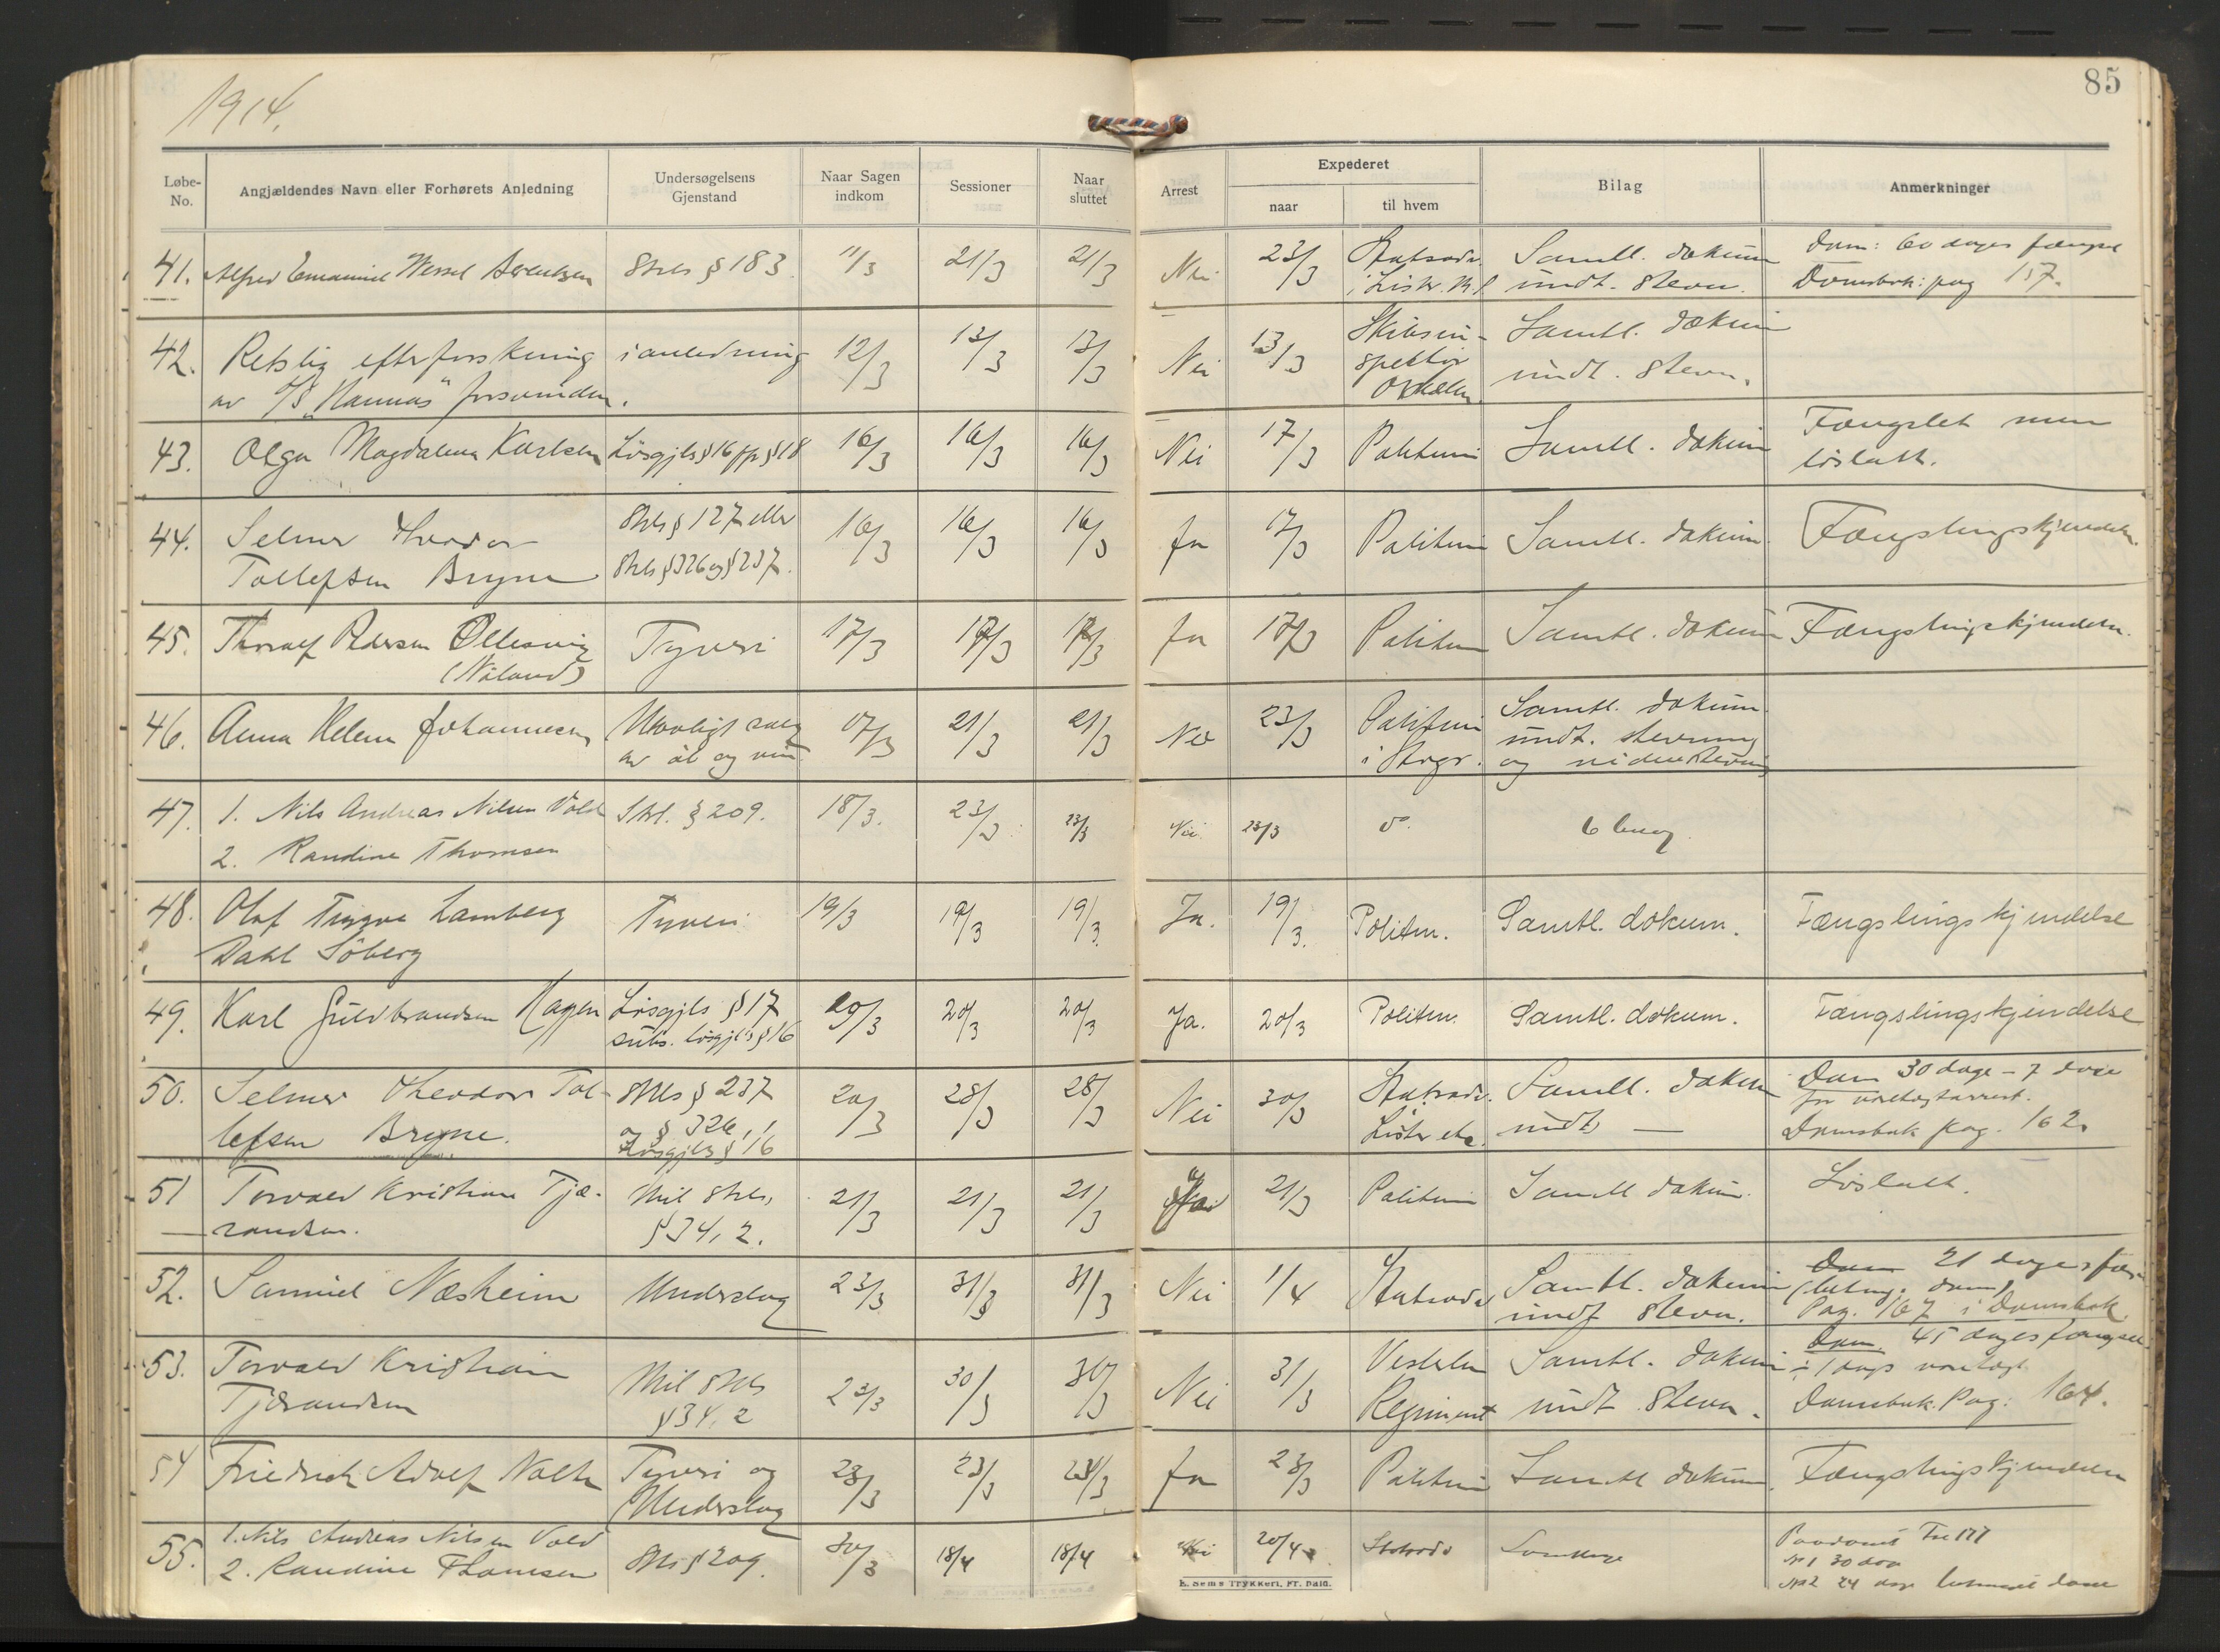 1914.
85
Løbe-No.
Angjældendes Navn eller Forhørets Anledning
Undersøgelsens Gjenstand
Naar Sagen indkom
Sessioner
Naar sluttet
Arrest
Expederet
naar
til hvem
Bilag
Anmerkninger
41. Alfred Emanuel Wessel Berentzen Strls § 183. 11/3 21/3 21/3 Nei 23/3 Statsadv. i Lister Samtl. dokum undt. stevn. Dom: 60 dages fængsel
Domsbok: pag 157.
42. Retslig efterforskning i anledning 12/3 13/3 13/3 Nei 13/3 Skibsin- Samtl. dokum
av S/S "Hannas" forsvinden. spektør undt. stevn.
43. Olga Magdalena Karlsen Løsgjls § 16 jfr § 18 16/3 16/3 16/3 Nei 17/3 Politim Samtl. dokum Fængslet men
løslatt.
44. Selmer Theodor Strls § 127 eller 16/3 16/3 16/3 Ja 17/3 Politim Samtl. dokum. Fængslingskjendelse.
Tollefsen Bryne Strls § 326 og § 237.
45. Thoralf Pedersen Ollesvig Tyveri 17/3 17/3 17/3 Ja 17/3 Politim Samtl. dokum Fængslingskjendelse.
(Nåland)
46. Anna Helene Johannesen Ulovligt salg 17/3 21/3 21/3 Nei 23/3 Politim Samtl. dokum.
av øl og vin i Stvgr. undt. stevning
47. 1. Nils Andreas Nilsen Vold Strl. § 209. 18/3. 23/3 23/3 Nei 23/3 do. 6 bilag
2. Randine Thomsen
48. Olaf Trygve Lamberg Tyveri 19/3 19/3 19/3. Ja. 19/3. Politim. Samtl. dokum. Fængslingskjendelse
Dahl Söberg
49. Karl Guldbrandsen Hagen Løsgjls § 17 20/3 20/3 20/3 Ja. 20/3 Politim. Samtl. dokum. Fængslingskjendelse
subs. løsgjls § 16
50. Selmer Theodor Tol- Strls § 237 20/3 28/3 28/3 Nei 30/3 Statsadv. Samtl. dokum Dom 30 dage – 7 dage
lefsen Bryne. og § 326, 1 Lister etc. undt — for varetægtarrest.
Løsgjls § 16 Domsbok pag. 162.
51 Torvald Kristian Tjæ- Mil strls, 21/3 21/3 21/3 Ja 21/3 Politim Samtl dokum. Løslatt.
randsen. § 34, 2.
52. Samuel Næsheim Underslag 23/3 31/3 31/3 Nei 1/4 Statsadv Samtl. dokum Dom 21 dages fæn-
undt stevn. (beting. dom)
Pag. 167 i Domsbok.
53. Torvald Kristian Mil strls 23/3 30/3 30/3 Nei 31/3 Vesterlen Samtl. dokum Dom. 45 dages fængsel
Tjærandsen § 34, 2 Regiment undt stevn. ÷ 1 dags varetægt
Domsbok. Pag: 164.
54 Friedrich Adolf Nolte Tyveri og 23/3 23/3 23/3 Ja 23/3 Politim Samtl dokum. Fængslingskjendelse
Underslag
55. 1. Nils Andreas Nilsen Vold Strls § 209. 30/3 18/4 18/4 Nei 20/4 Statsadv Samtlige
2. Randine Thomsen No 1 30 dage
No 2 24 dage betinget dom
E. Sems Trykkeri, Fr. hald.